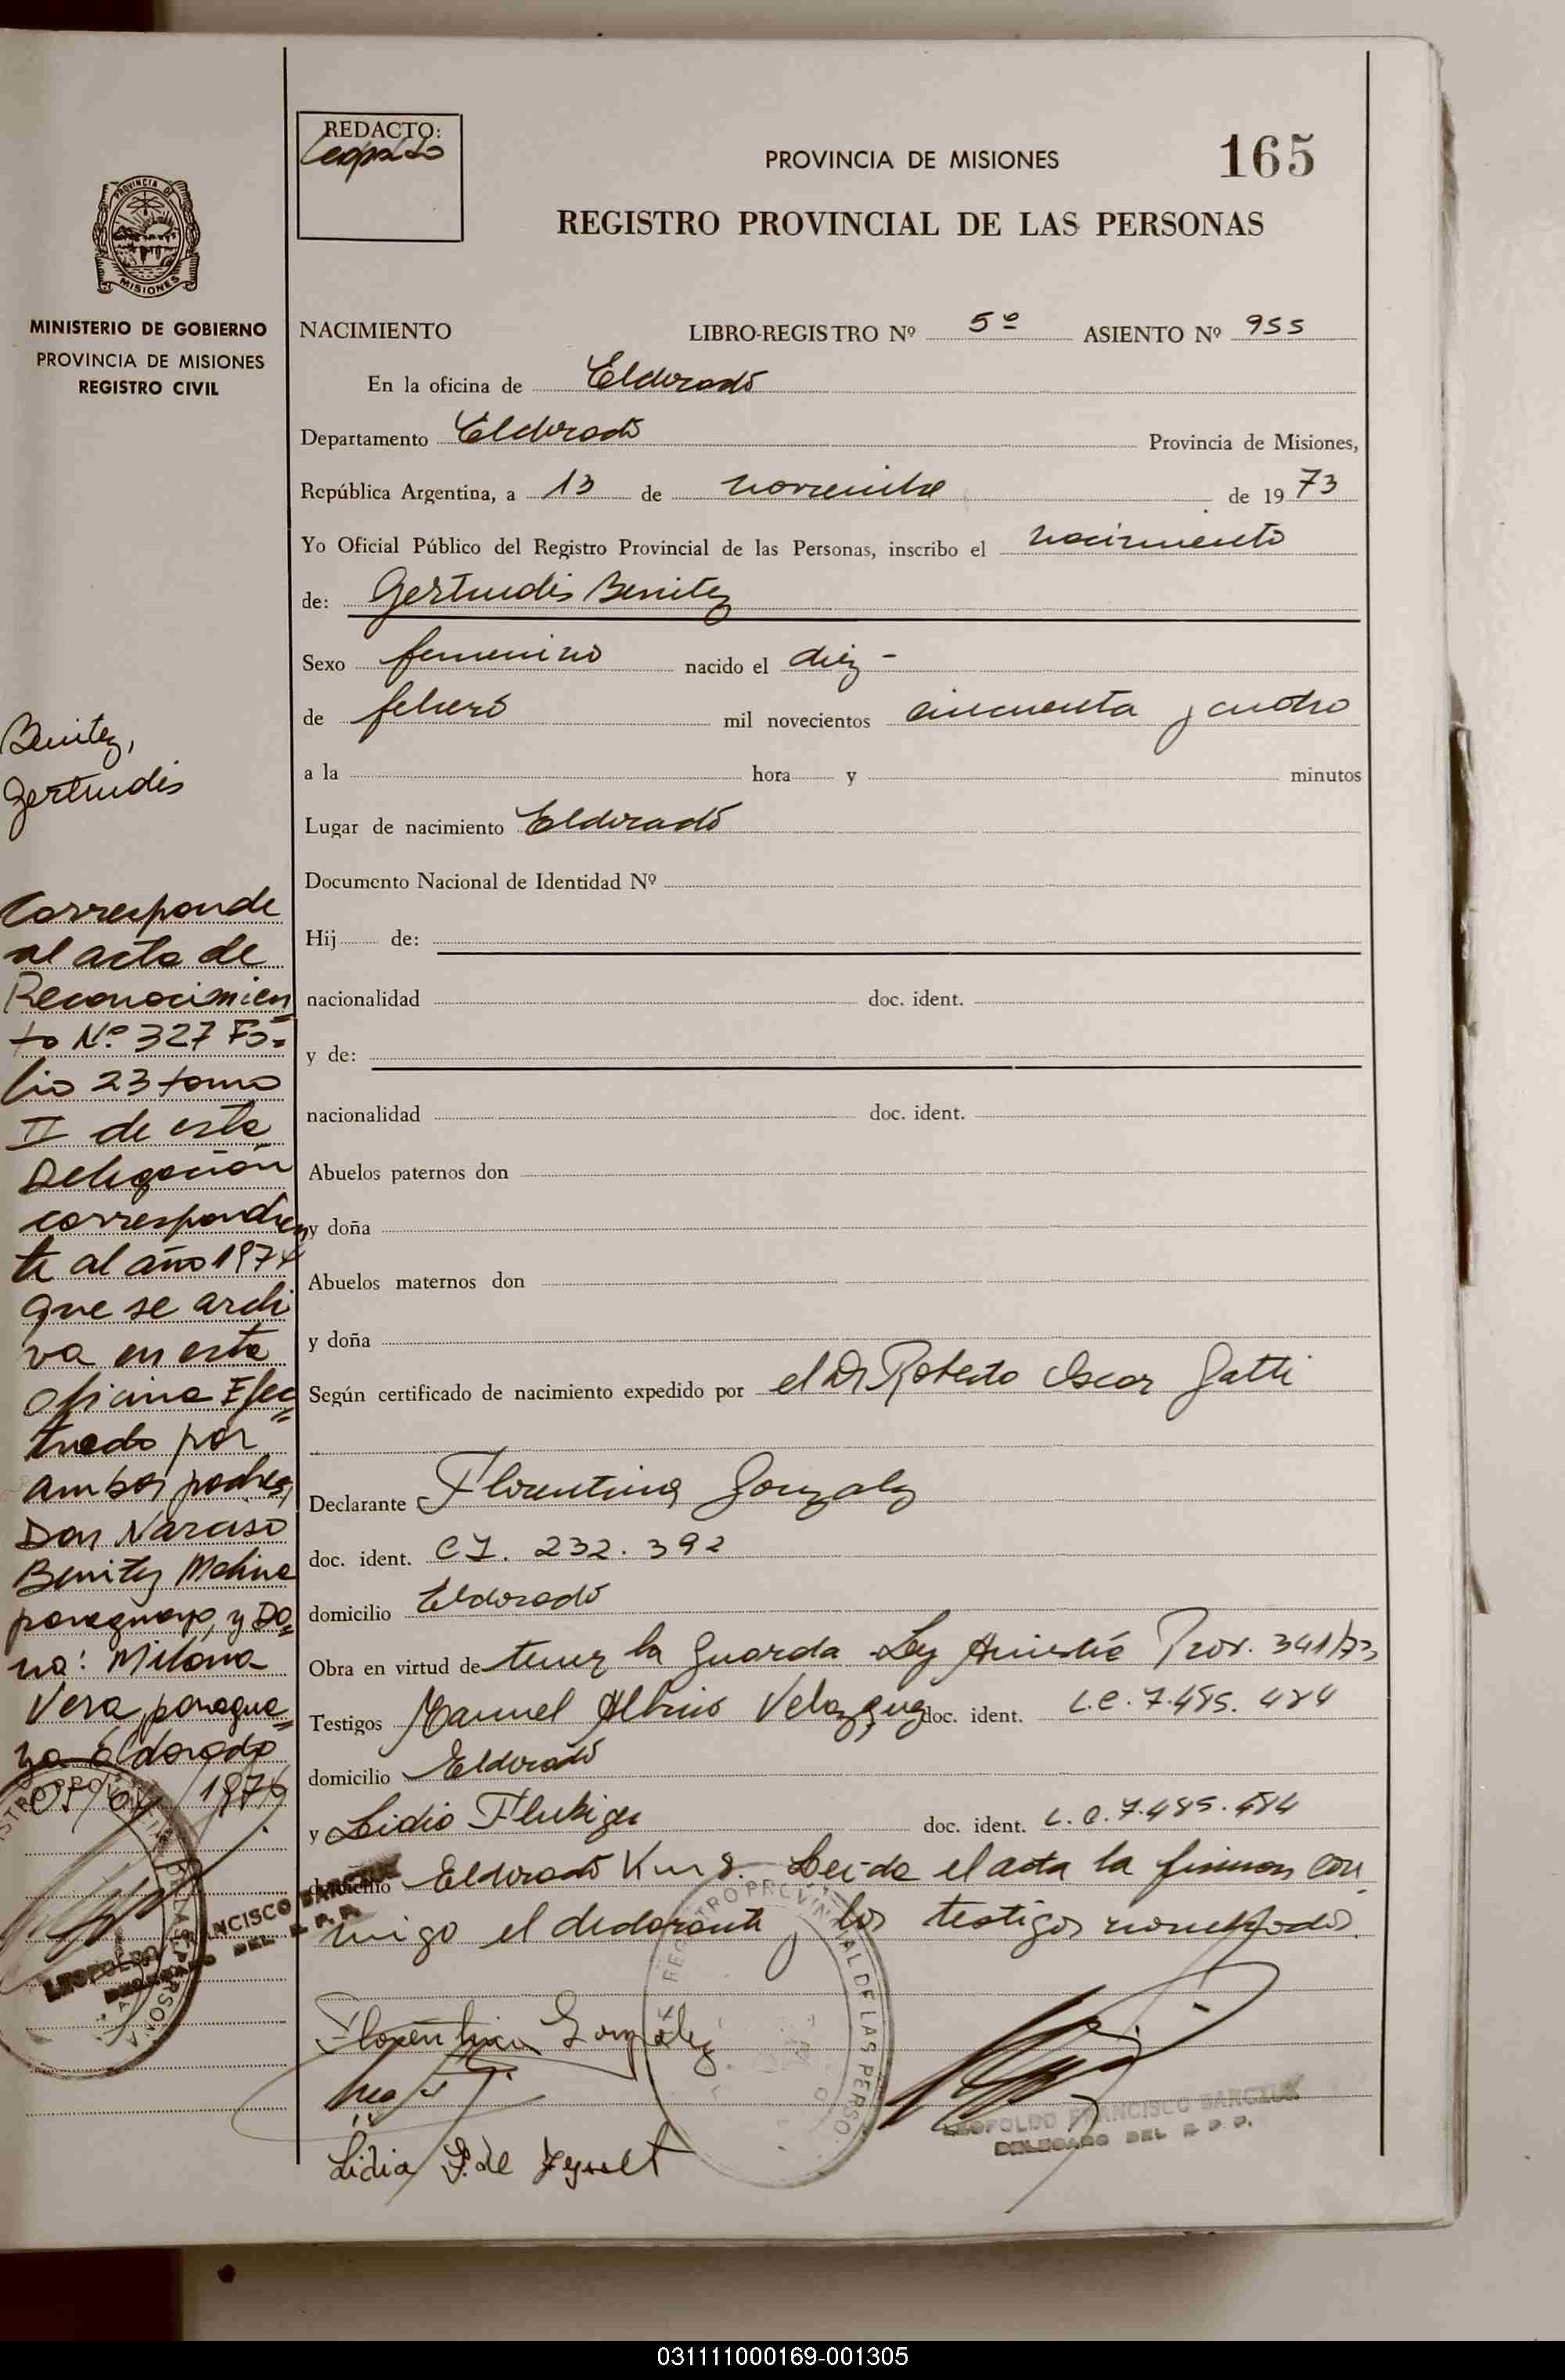 REDACTO:
Leopoldo
PROVINCIA DE MISIONES
165
REGISTRO PROVINCIAL DE LAS PERSONAS
PROVINCIA DE
MISIONES
MINISTERIO DE GOBIERNO
PROVINCIA DE MISIONES
REGISTRO CIVIL
NACIMIENTO LIBRO-REGISTRO Nº 5º ASIENTO Nº 955
En la oficina de Eldorado
Departamento Eldorado Provincia de Misiones,
República Argentina, a 13 de noviembre de 19 73
Yo Oficial Público del Registro Provincial de las Personas, inscribo el nacimiento
de: Gertrudis Benitez
Sexo femenino nacido el diez -
de febrero mil novecientos cincuenta y cuatro
a la hora y minutos
Lugar de nacimiento Eldorado
Documento Nacional de Identidad Nº
Hij de:
nacionalidad doc. ident.
y de:
nacionalidad doc. ident.
Abuelos paternos don
y doña
Abuelos maternos don
y doña
Según certificado de nacimiento expedido por el Dr Roberto Oscar Gatti
Declarante Florentina Gonzalez
doc. ident. CI. 232.392
domicilio Eldorado
Obra en virtud de tener la guarda Ley Amistia Prov. 341/73
Testigos Manuel Albino Velazquez doc. ident. L.E. 7.485.484
domicilio Eldorado
y Lidia Flukiger doc. ident. L.C. 7.485.484
domicilio Eldorado Km 8. Leida el acta la firman con
migo el declarante y los testigos nombrados.
Florentina Gonzalez
Lidia F. de
REGISTRO PROVINCIAL DE LAS PERSO
LEOPOLDO FRANCISCO
DELEGADO DEL R. P. P.
Benitez,
Gertrudis
Corresponde
al acta de
Reconocimien
to Nº 327 Fo=
lio 23 tomo
II de esta
Delegación
correspondien
te al año 1974
que se archi
va en esta
oficina Efec=
tuado por
ambos padres,
Don Narciso
Benitez Molina
paraguayo, y Do=
ña: Milona
Vera, paragua=
ya Eldorado
LEOPOLDO FRANCISCO
DELEGADO DEL R. P. P.
031111000169-001305